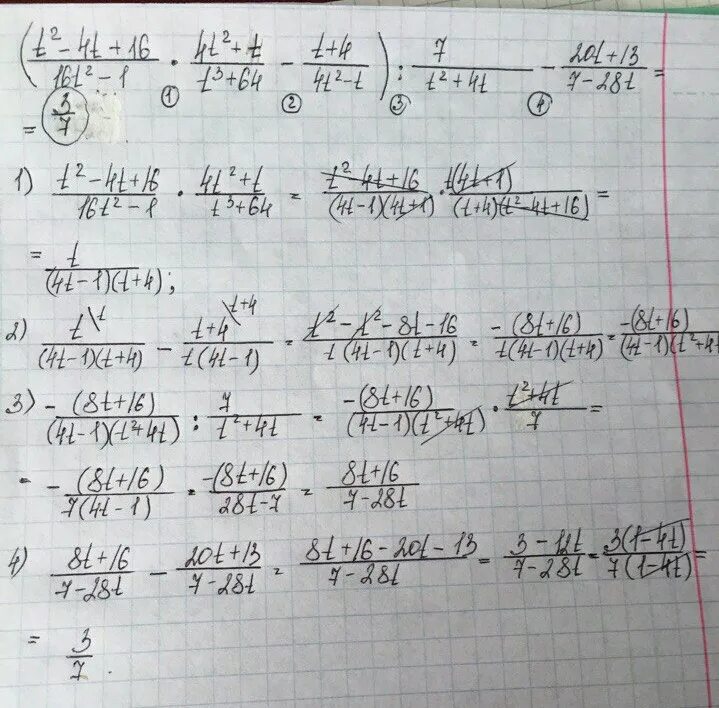 (t² - 4t + 16 / 16t² - 1 · 4t² + t / t³ + 64 - t + 4 / 4t² - t) : 7 / t² + 4t - 20t + 13 / 7 - 28t =
① ② ③ ④
= 3/7
1) t² - 4t + 16 / 16t² - 1 · 4t² + t / t³ + 64 = t² - 4t + 16 / (4t - 1)(4t + 1) · t(4t + 1) / (t + 4)(t² - 4t + 16) =
= t / (4t - 1)(t + 4);
2) t \t / (4t - 1)(t + 4) - t + 4 \t + 4 / t(4t - 1) = t² - t² - 8t - 16 / t(4t - 1)(t + 4) = -(8t + 16) / t(4t - 1)(t + 4) = -(8t + 16) / (4t - 1)(t² + 4t
3) -(8t + 16) / (4t - 1)(t² + 4t) : 7 / t² + 4t = -(8t + 16) / (4t - 1)(t² + 4t) · t² + 4t / 7 =
= -(8t + 16) / 7(4t - 1) = -(8t + 16) / 28t - 7 = 8t + 16 / 7 - 28t
4) 8t + 16 / 7 - 28t - 20t + 13 / 7 - 28t = 8t + 16 - 20t - 13 / 7 - 28t = 3 - 12t / 7 - 28t = 3(1 - 4t) / 7(1 - 4t) =
= 3/7.